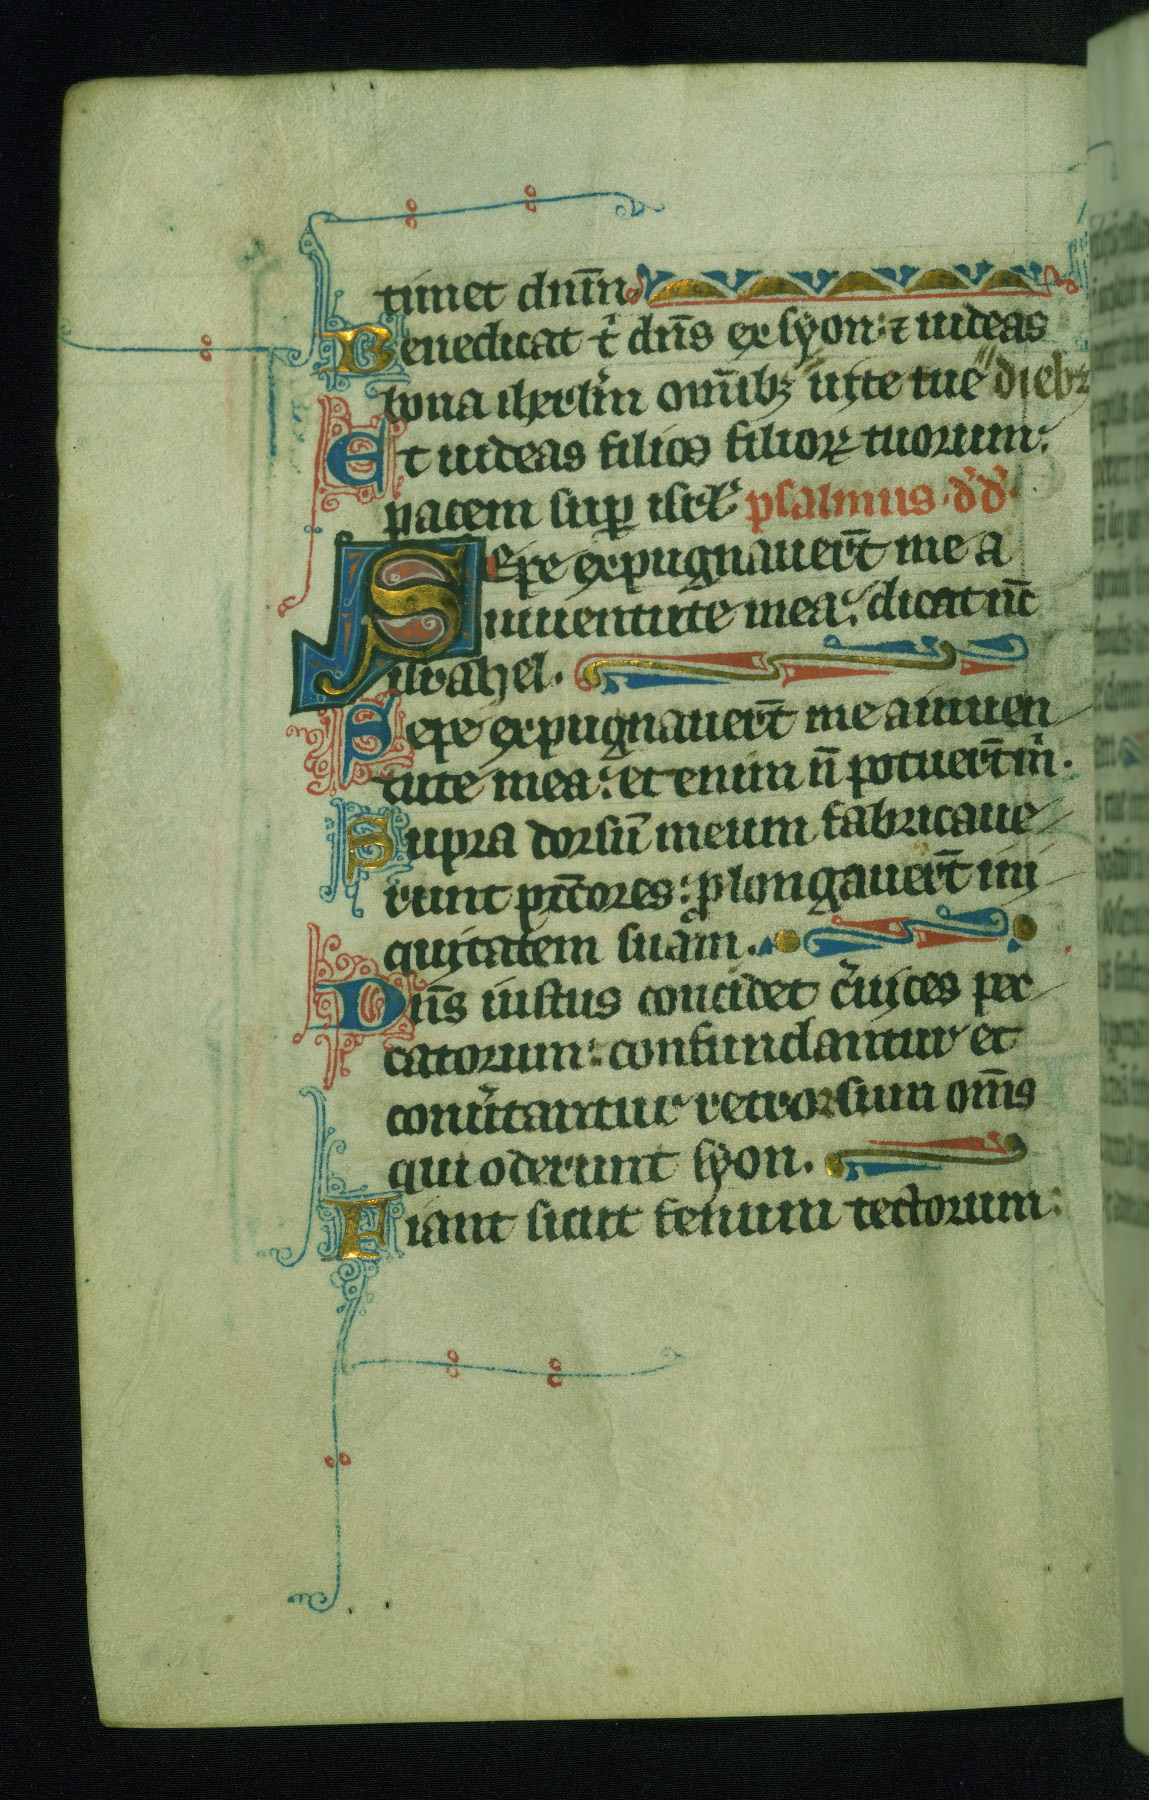 timet dnm̄
Benedicat t̉ dn̄s ex syon: ⁊ uideas
bona iherl̄m om̄ibꝫ uite tue dieb⁊
Et uideas filios filioꝝ tuorum:
pacem suꝑ isrl̄ psalmus d̉d̉
Sepe expugnauer̄t me a
iuuentute mea: dicat nc̄
israhel.
Sepe expugnauer̄t me a iuuen
tute mea: et enim n̄ potuer̄t m̉.
Supra dorsū meum fabricaue
runt pc̄tores: ꝓlongauer̄t ini
quitatem suam.
Dn̄s iustus concidet c̉uices pec
catorum: confundantur et
conủtantur retrorsum om̄s
qui oderunt syon.
Fiant sicut fenum tectorum: